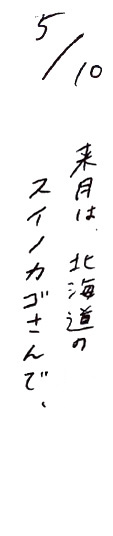 5/10
来月は、北海道の
スイノカゴさんで、